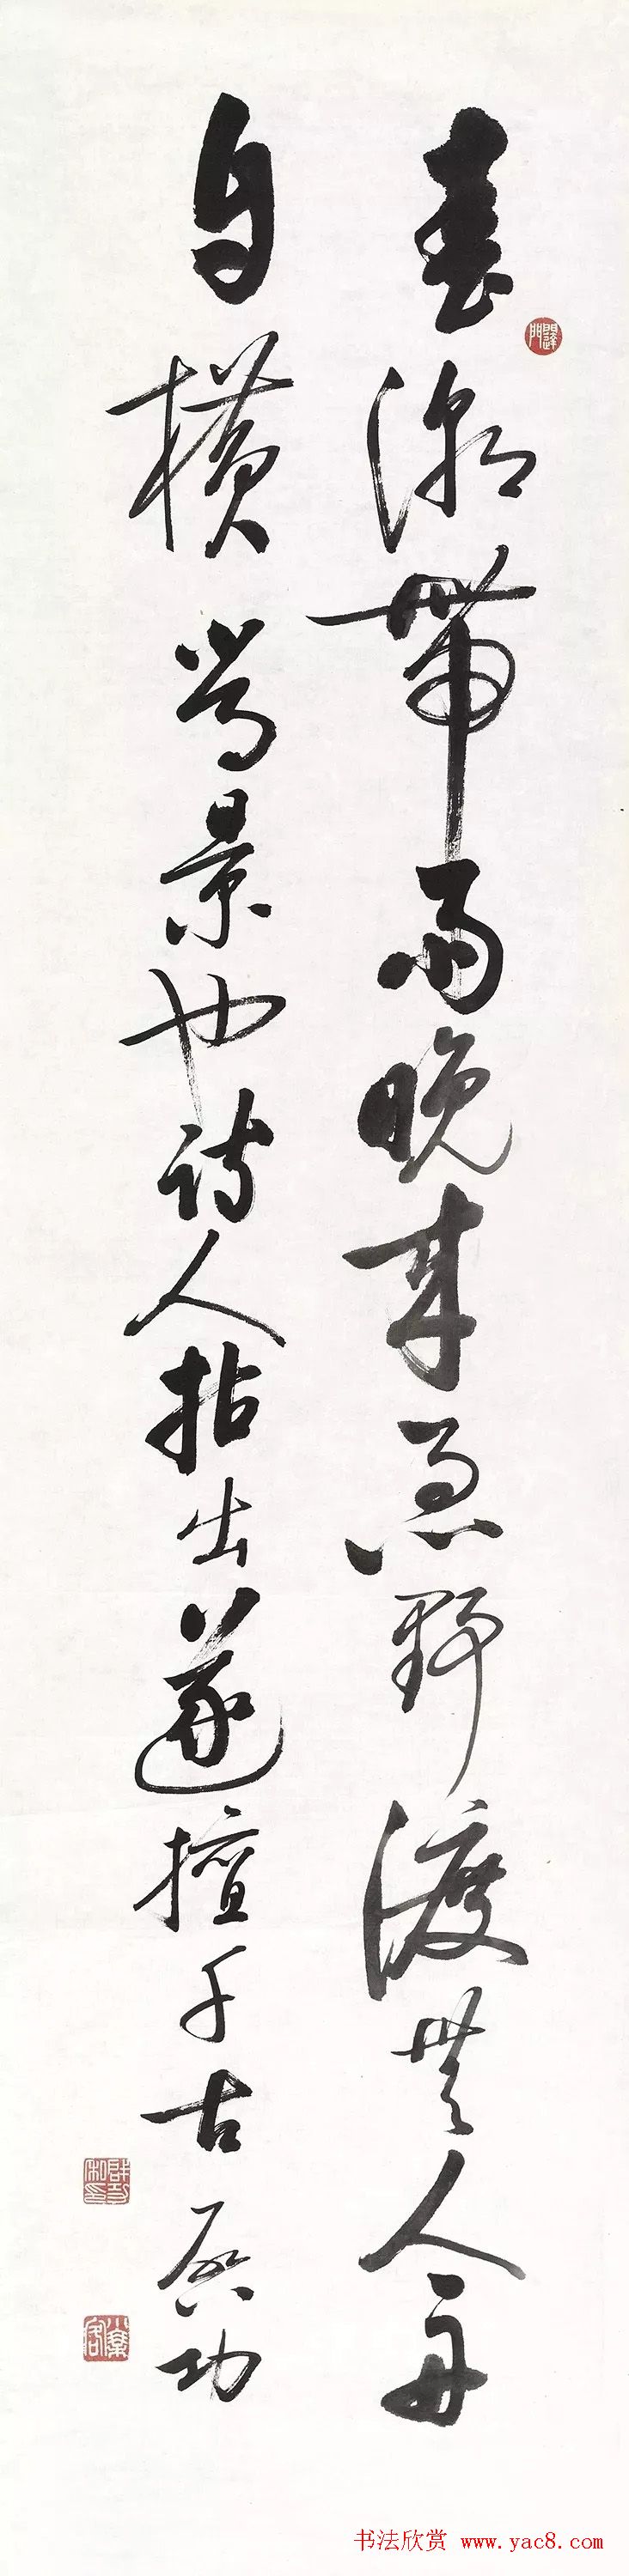 春潮帶雨晚来急野渡無人舟
自橫常景也詩人拈出遂擅千古 启功
書法欣赏 www.yac8.com